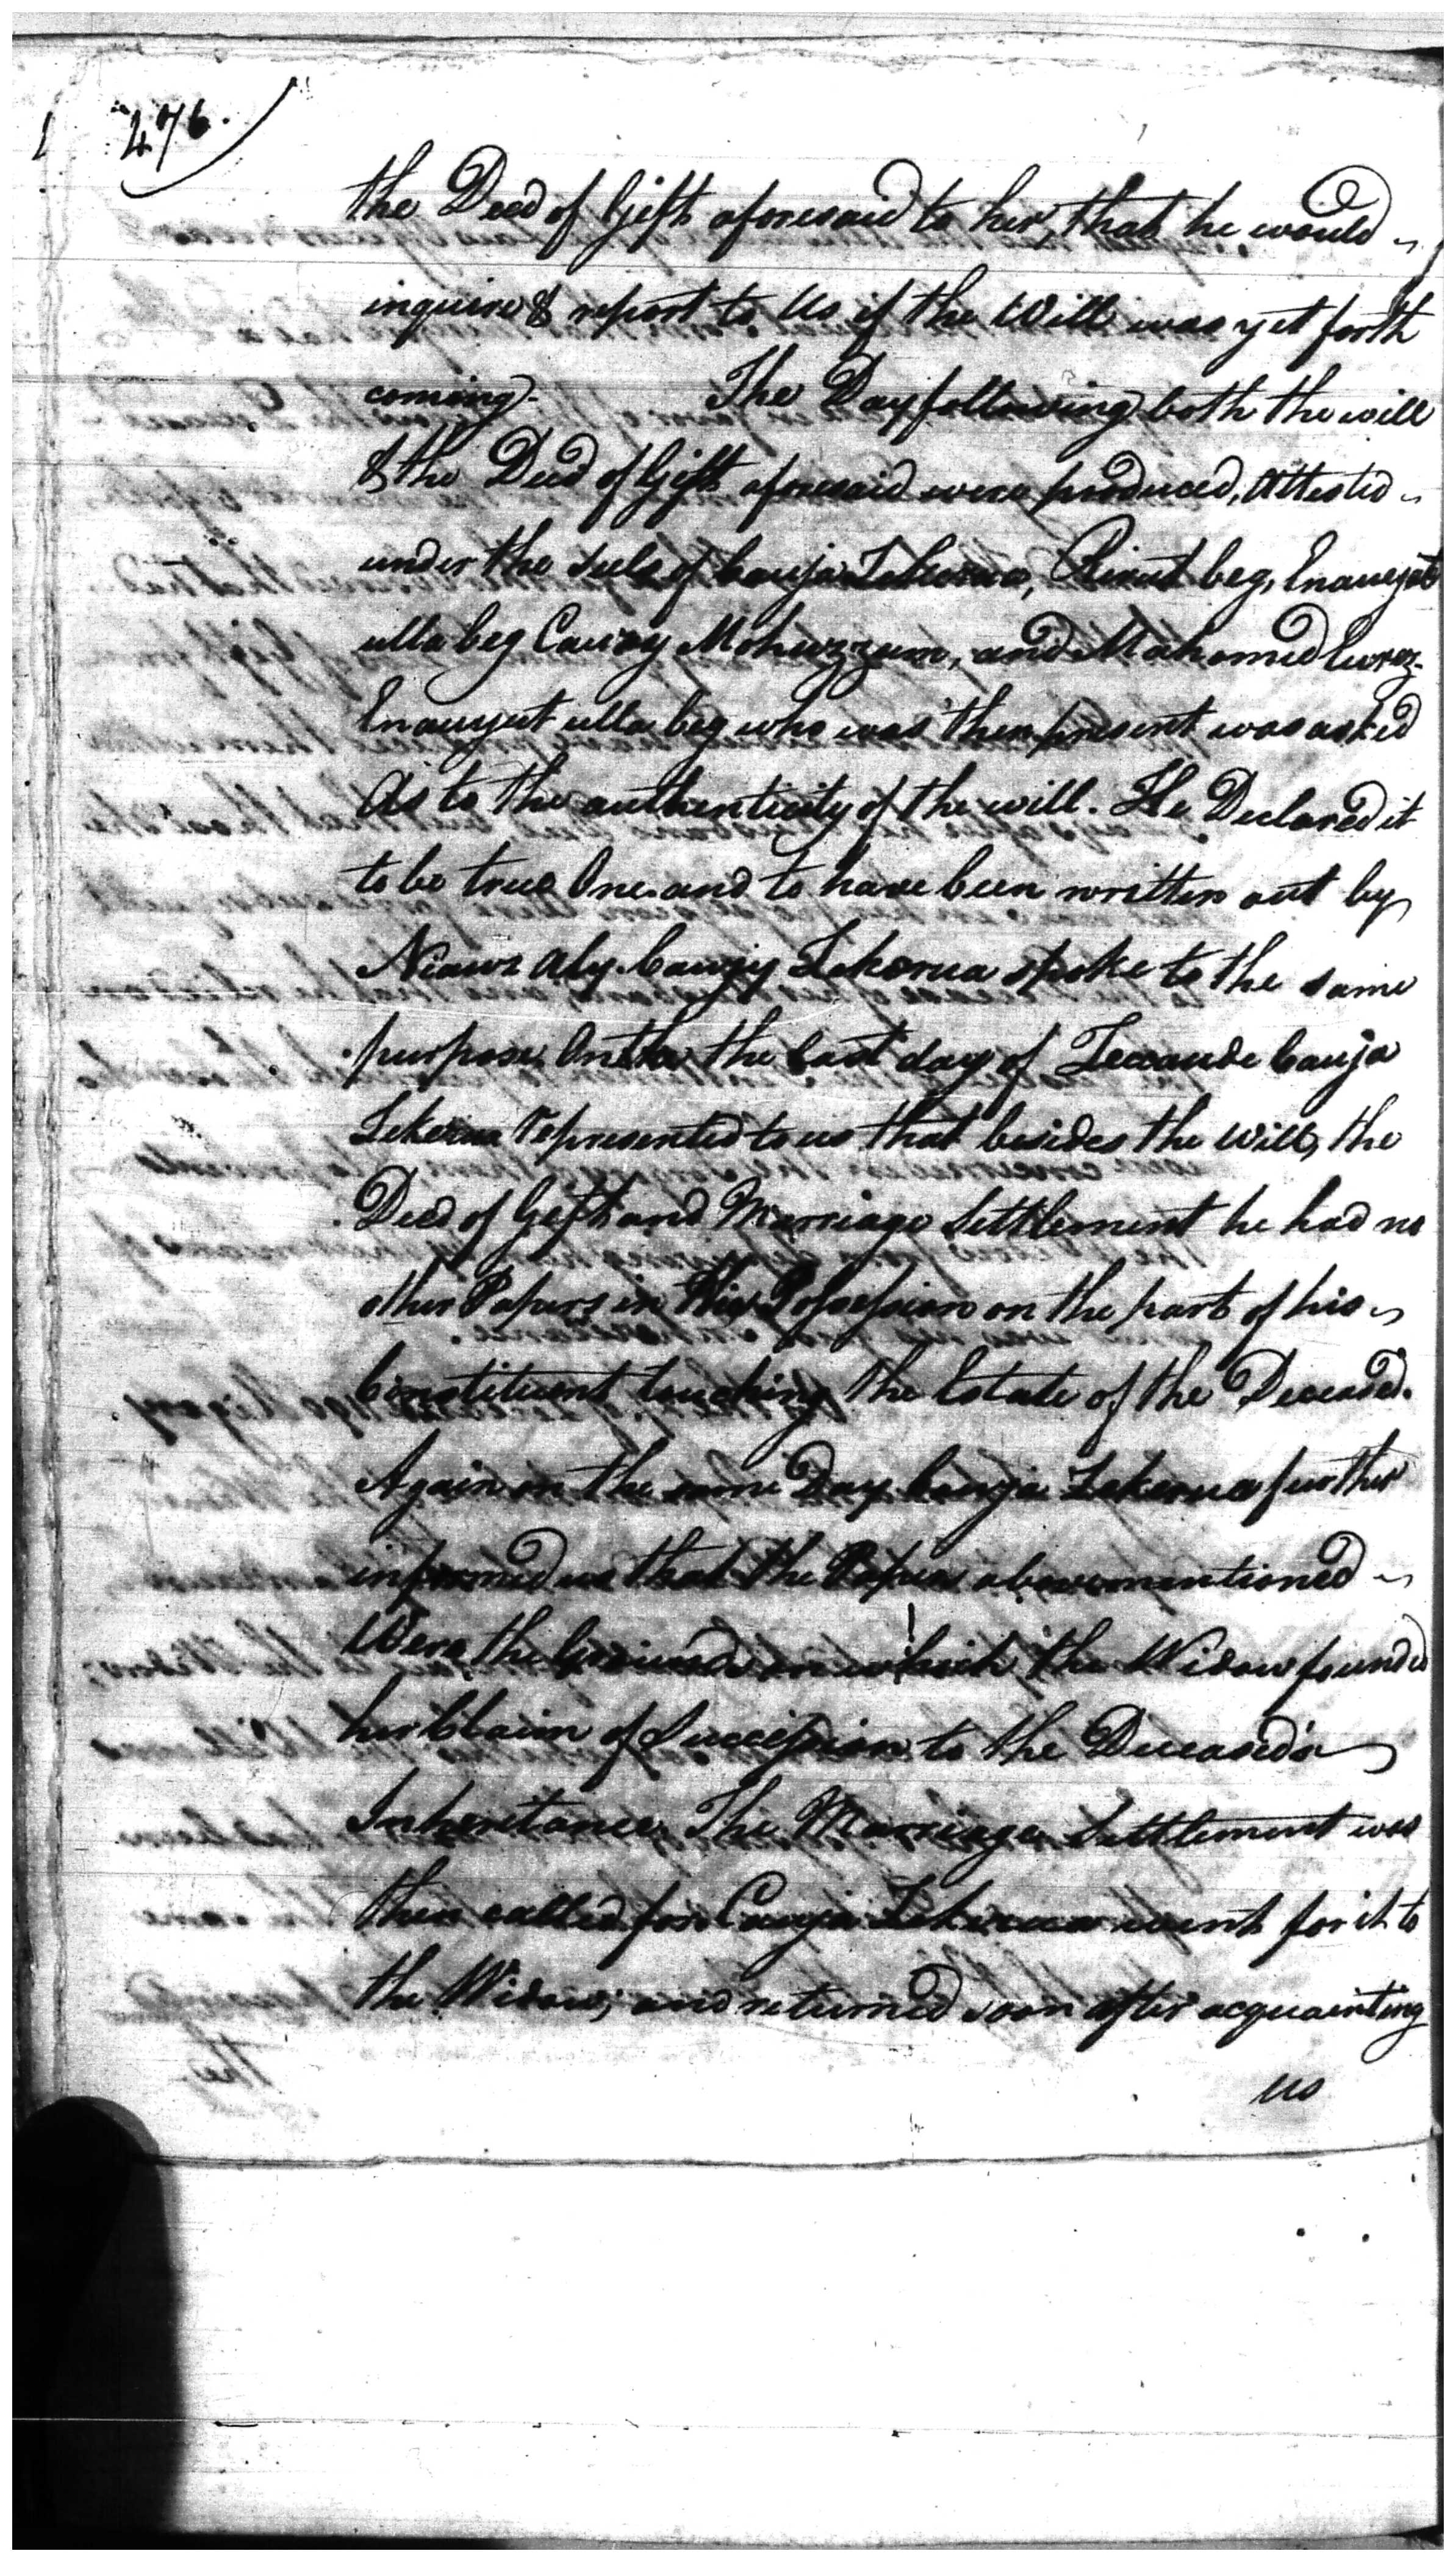 476.
the Deed of Gift aforesaid to her, that he would
inquire & report to Us if the Will was yet forth
coming. The Day following both the will
& the Deed of Gift aforesaid were produced, Attested
under the seals of Cauja Zekorua, beg, Enaueyat
ulla beg Cauzy Mohuzzum, and Mahomed
Enauyut ulla beg who was then present was asked
As to the authenticity of the will. He Declared it
to be true One and to have been written out by
Niauz Aly. Caujy Zekorua spoke to the same
purpose. the last day of Cauja
Zekerua represented to us that besides the will, the
Deed of Gift and Marriage Settlement he had no
other Papers in His Possession on the part of his
Constituent touching the Estate of the Deceased.
Again on the same Day Cauja Zekerua further
informed us that the Papers abovementioned
Were the Grounds on which the Widow founded
her Claim of Succession to the Deceased's
Inheritance. The Marriage Settlement was
then called for. Cauja Zekerua went for it to
the Widow; and returned soon after acquainting
us